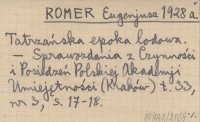 ROMER Eugenjusz 1928 a
Tatrzańska epoka lodowa.
— Sprawozdania z Czynności
i Posiedzeń Polskiej Akademji
Umiejętności (Kraków) t. 33,
nr 3, s. 17-18.